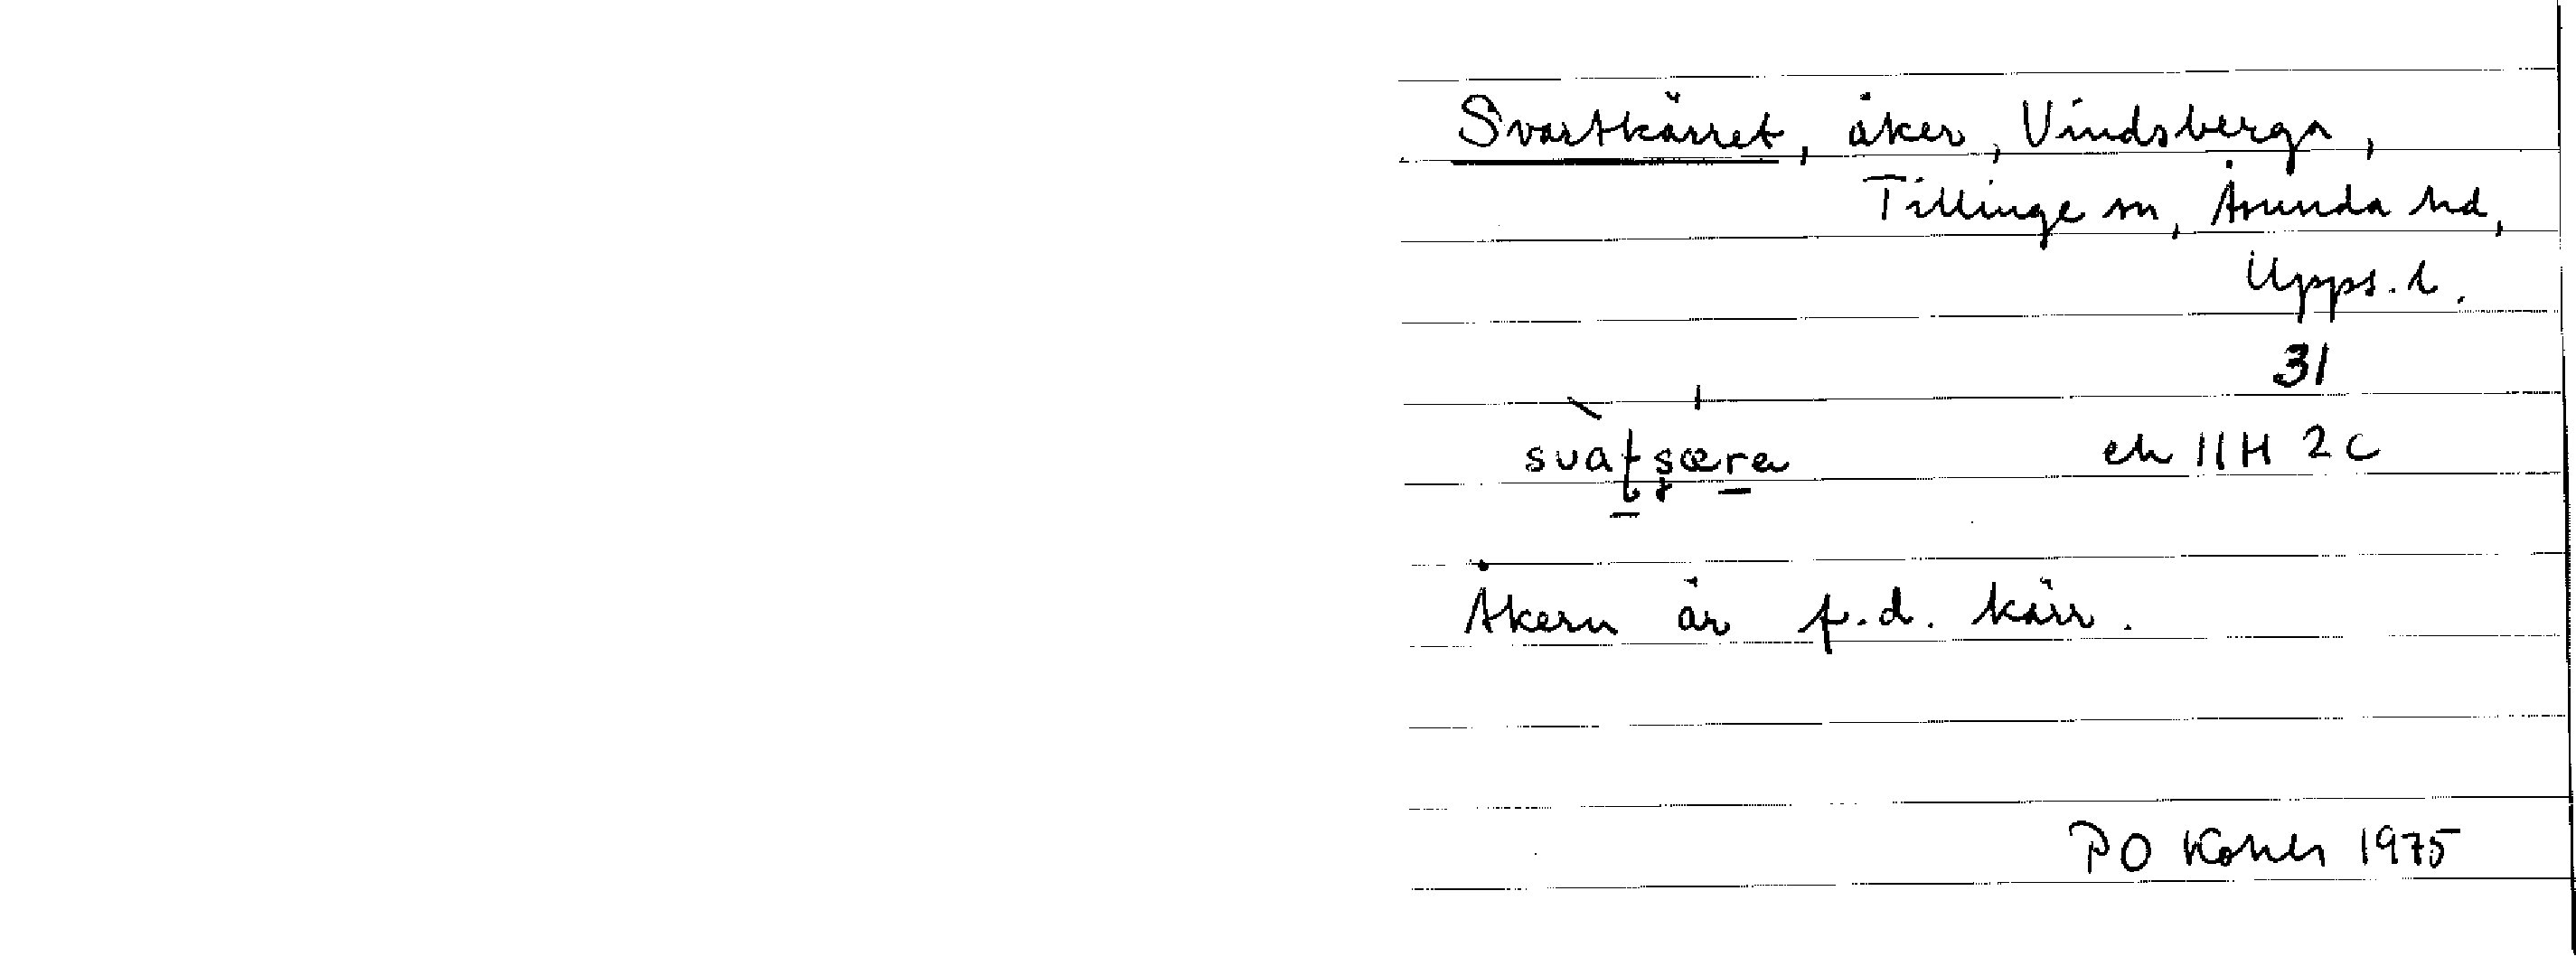 Svartkärret, åker, Vindsberga,
Tillinge sn, Åsunda hd,
Upps. l.
31
ek 11H 2c
Åkern är f.d. kärr.
PO 1975